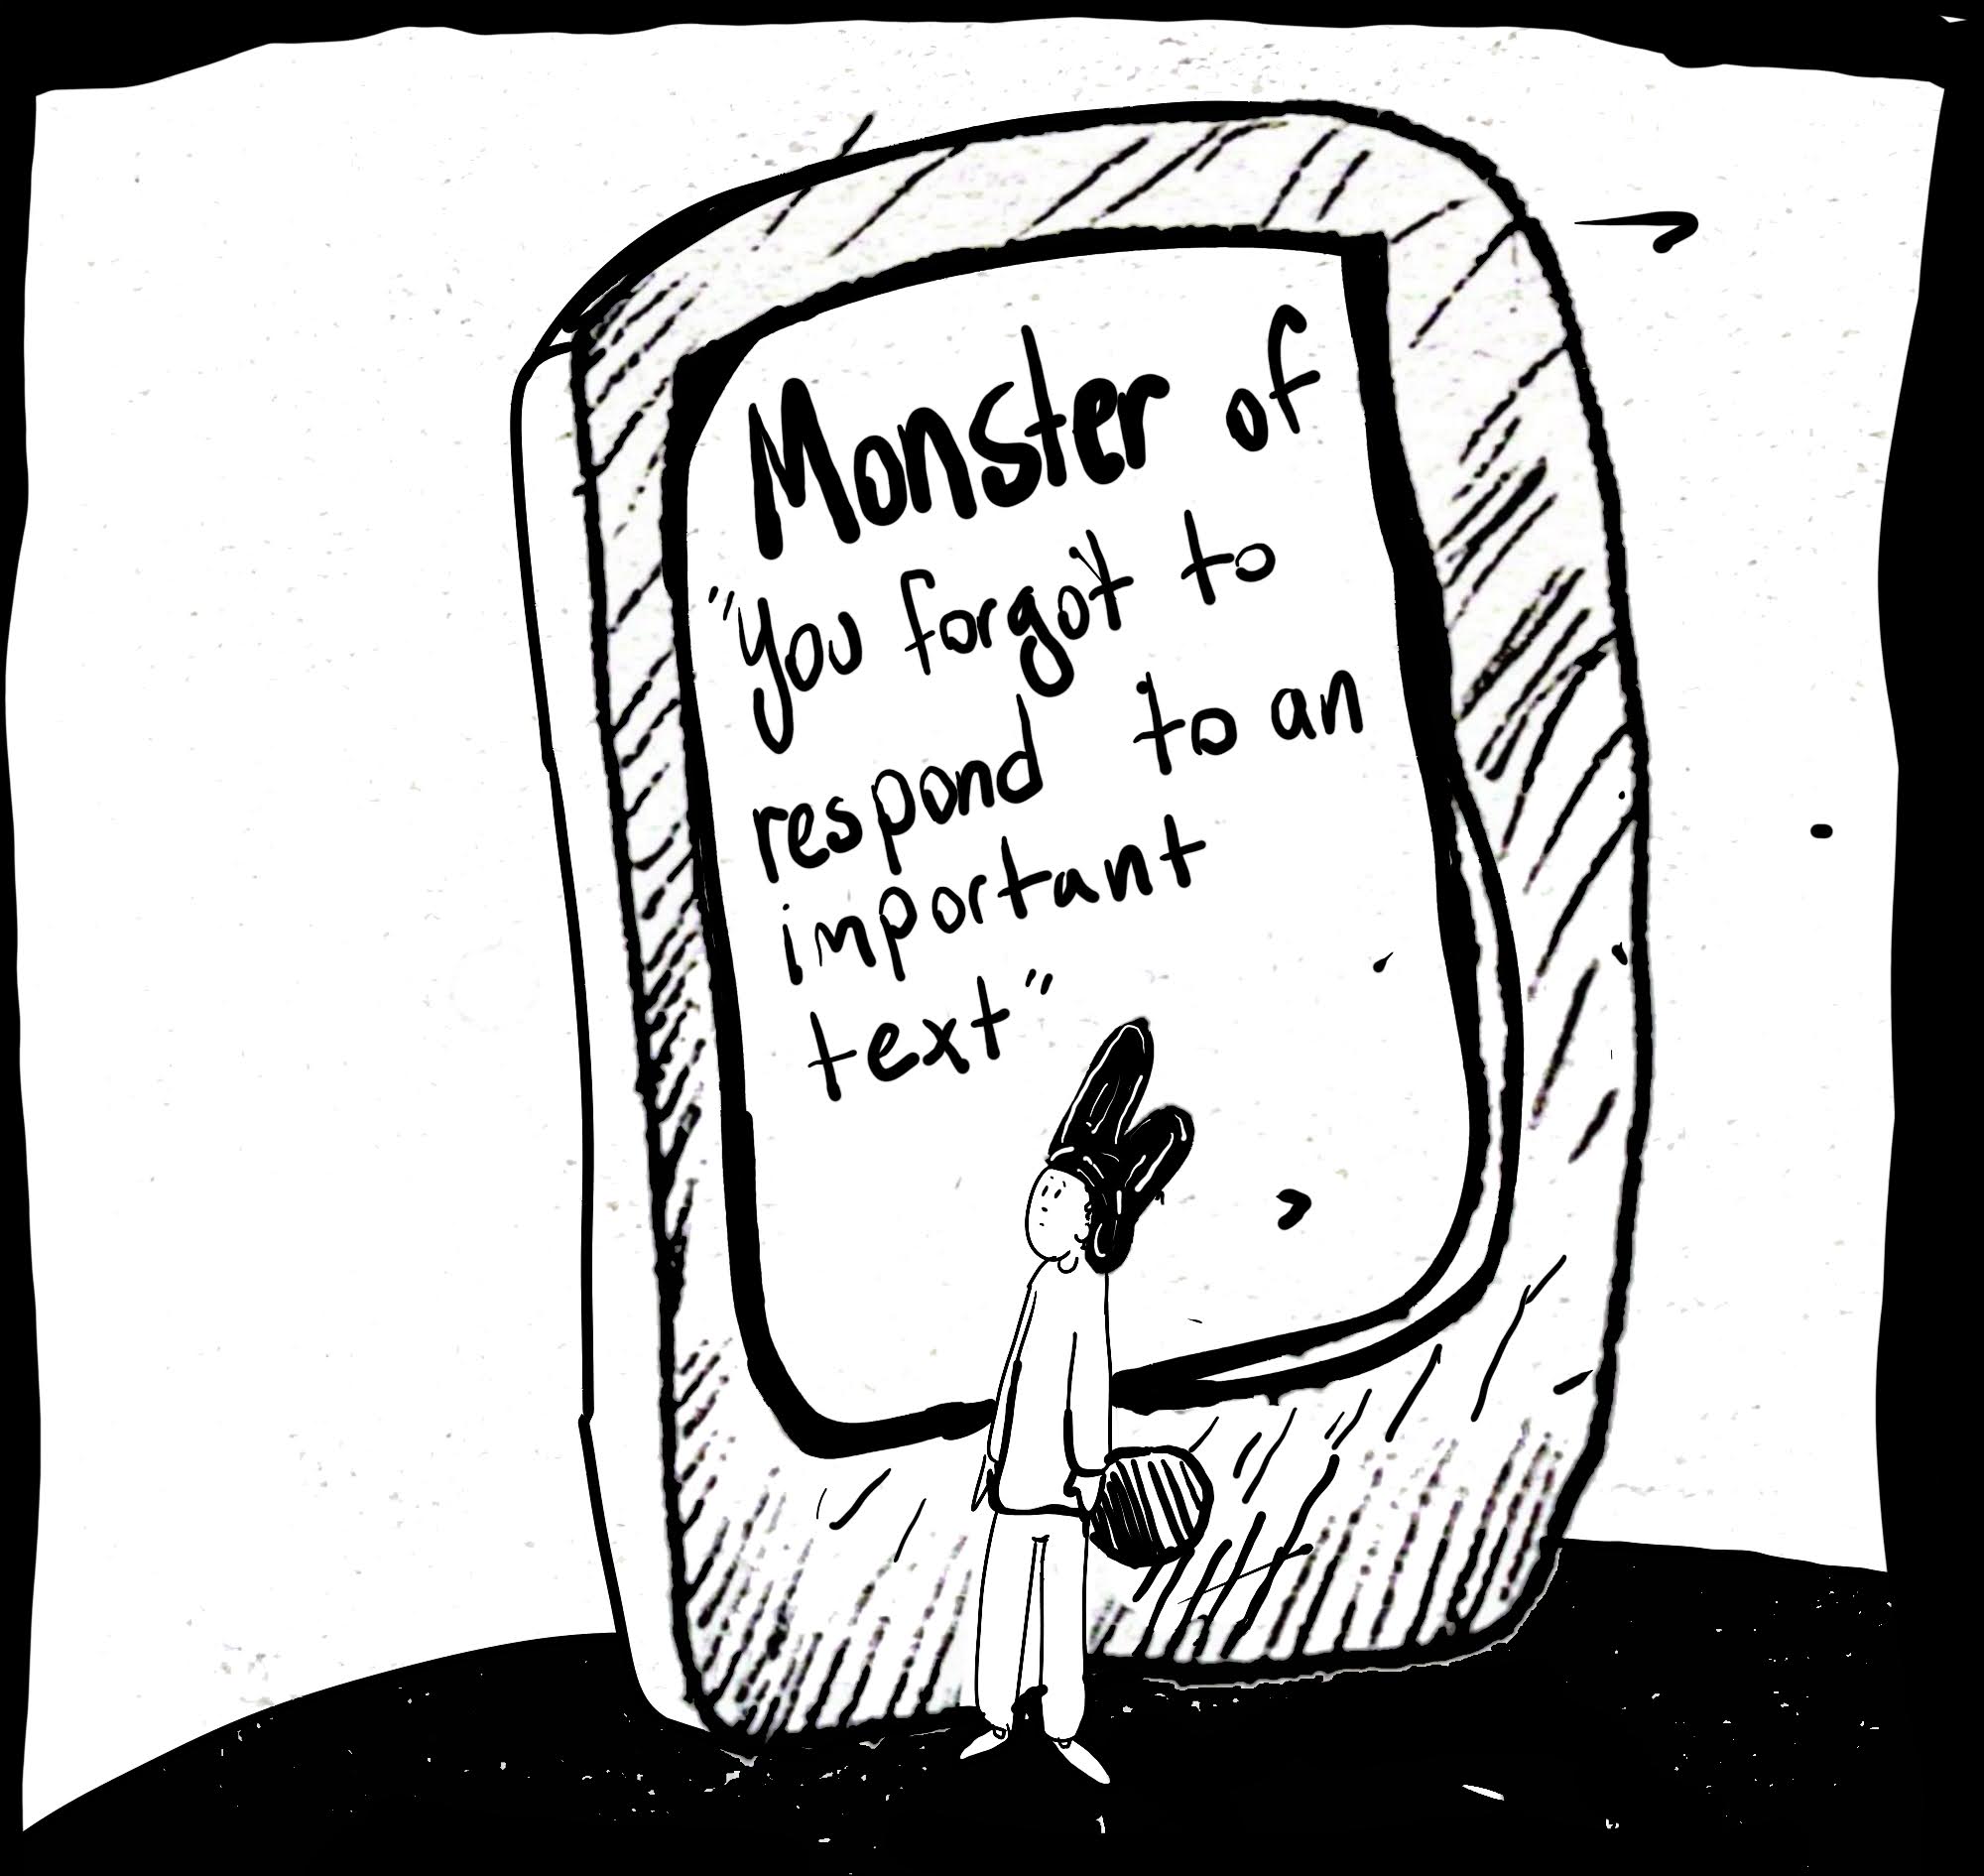 Monster of
"You forgot to
respond to an
important
text"